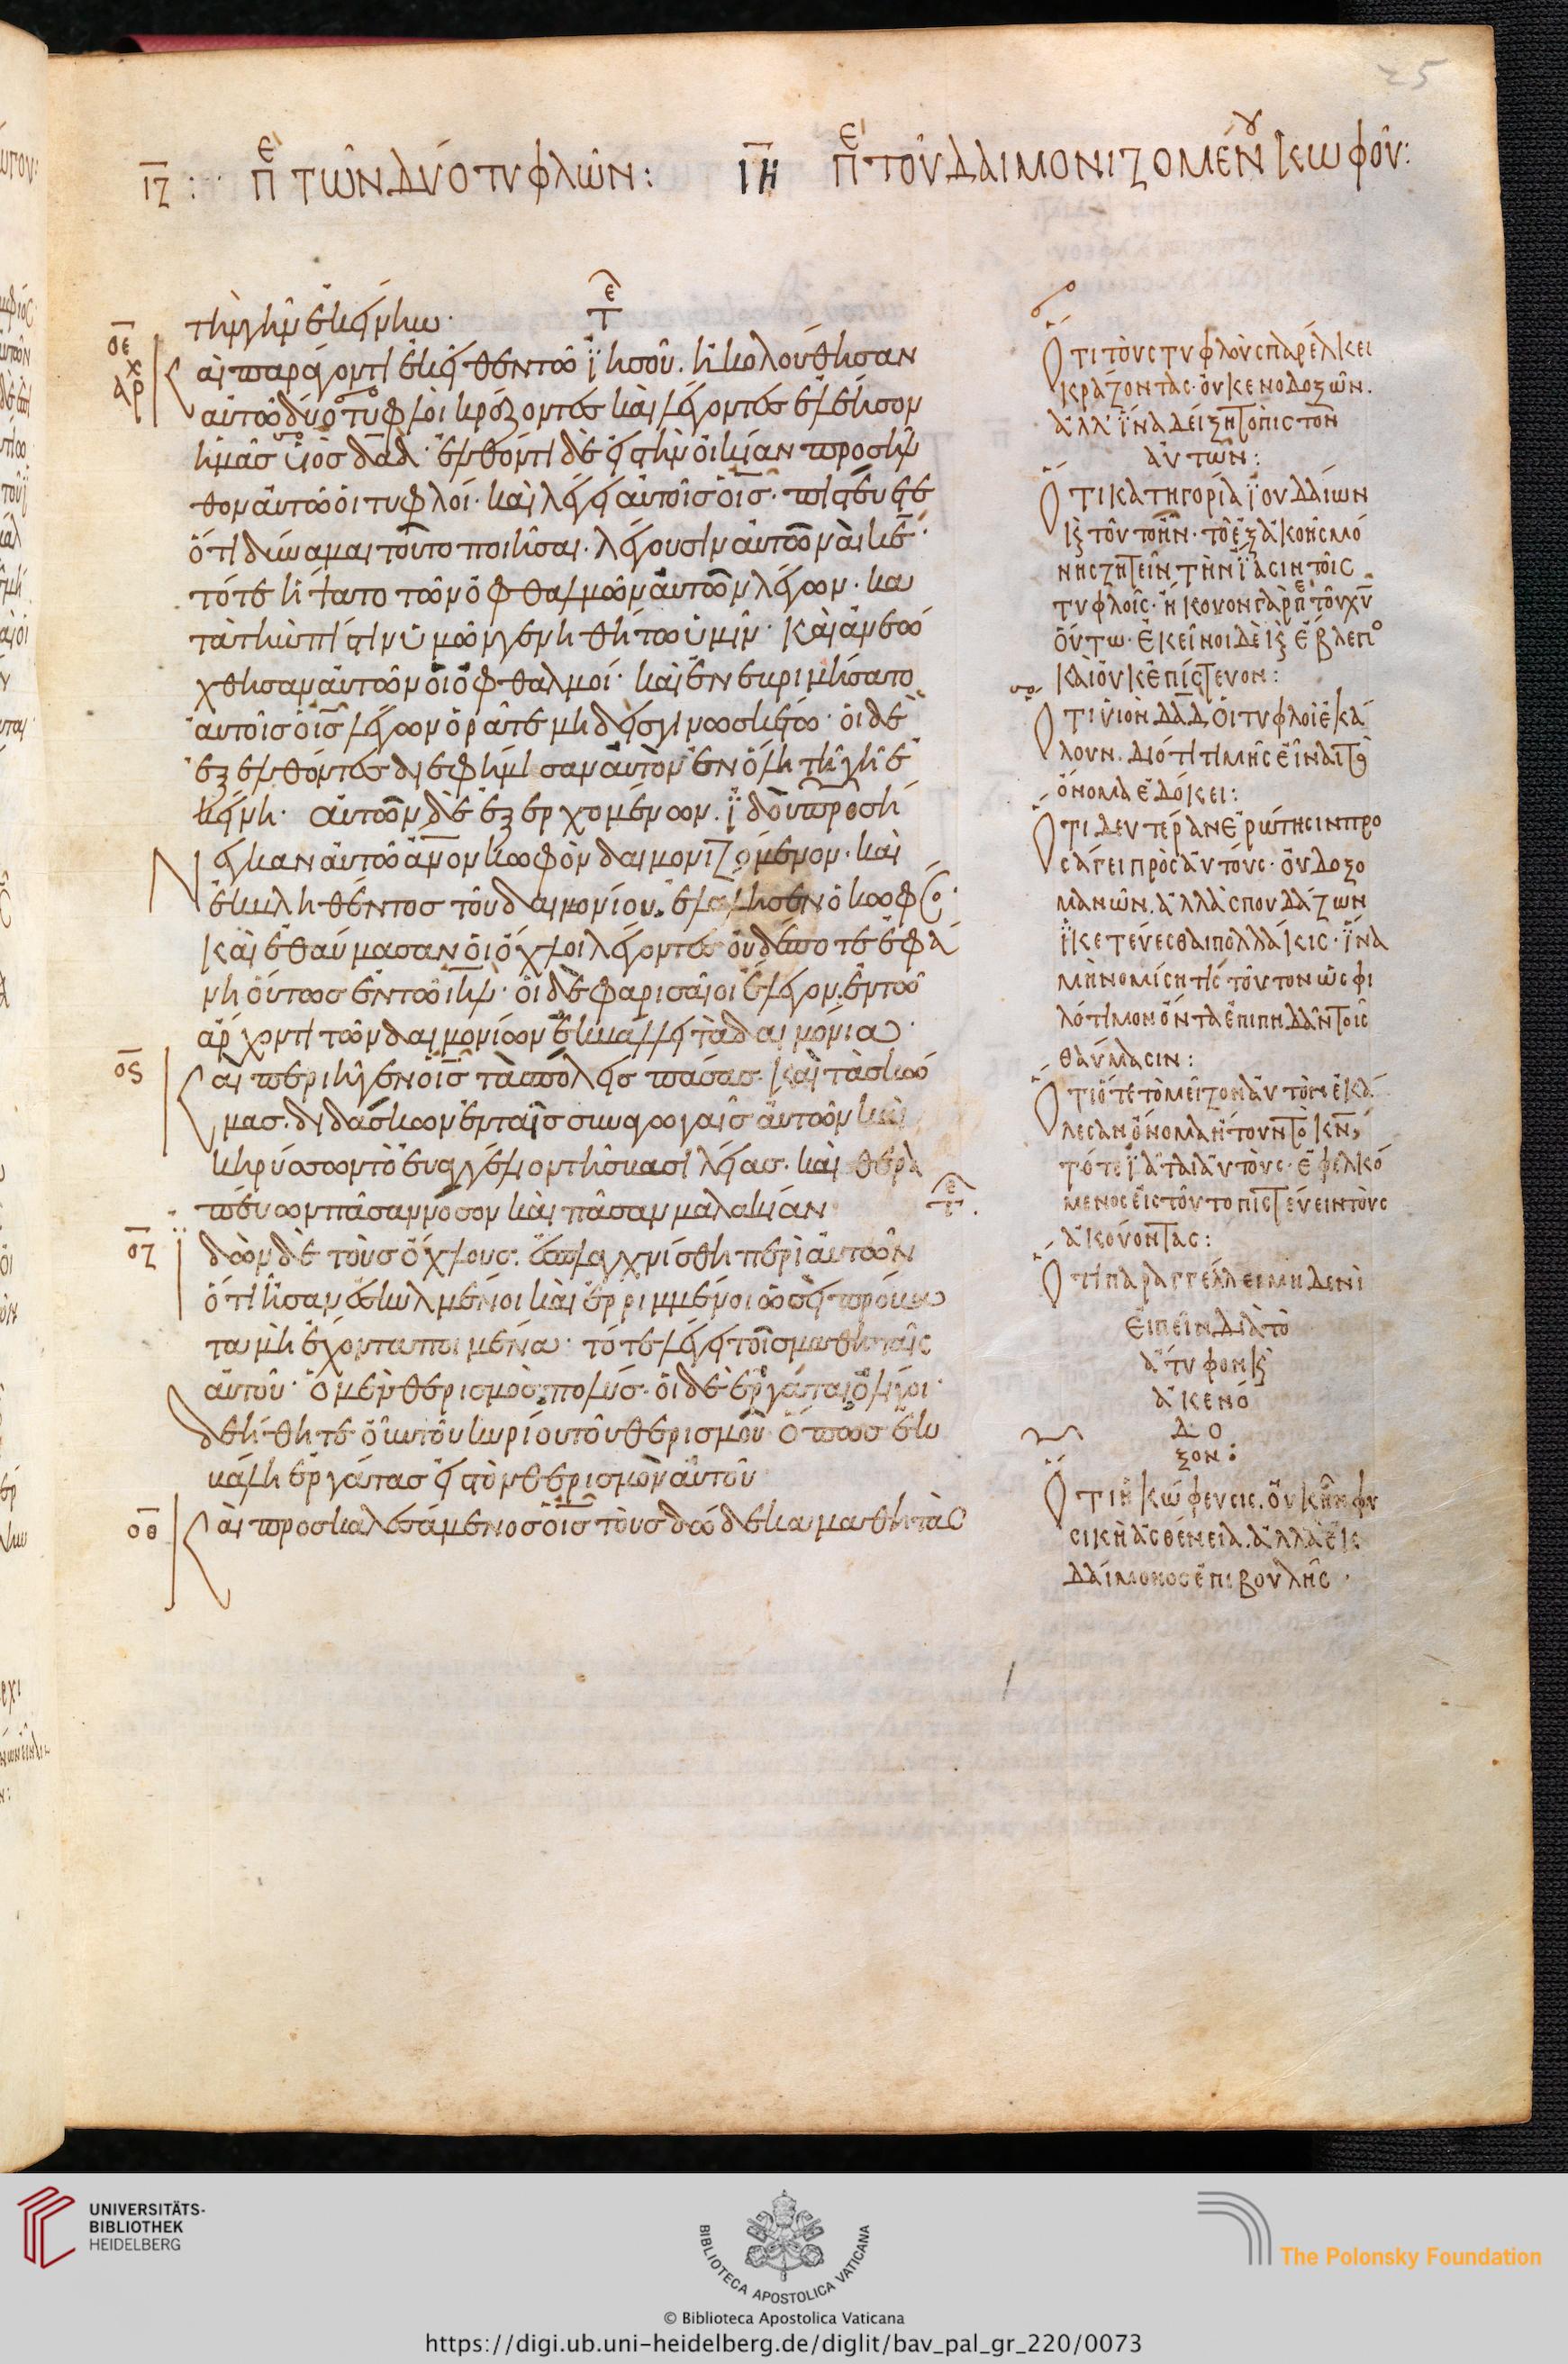 25
ΙΖ: περὶ τῶν δύο τυφλῶν: ΙΗ περὶ τοῦ δαιμονιζομένου κωφοῦ:
τὴν γῆν ἐκείνην·
ΟΕ
αρχ
Καὶ παράγοντι ἐκεῖθεν τῶ ϊησοῦ. ἠκολούθησαν
αὐτῶ δύο τυφλοὶ κράζοντες καὶ λέγοντες ἐλέησον
ἡμᾶς υἱὸς δαδ· ἐλθόντι δὲ εἰς τὴν οἰκίαν προσῆλ
θον αὐτῶ οἱ τυφλοί· καὶ λέγει αὐτοῖς ὁ ις· πιστεύετε
ὅτι δύναμαι τοῦτο ποιῆσαι· λέγουσιν αὐτῶ ναὶ κε·
τότε ἥψατο τῶν ὀφθαλμῶν αὐτῶν λέγων· κα
τὰ τὴν πίστιν ὑμῶν γενηθήτω ὑμῖν· Καὶ ἀνεώ
χθησαν αὐτῶν οἱ ὀφθαλμοί· καὶ ἐνεβριμήσατο
αὐτοῖς ὁ ις λέγων ὁρᾶτε μηδεὶς γινωσκέτω· οἱ δὲ
ἐξελθόντες διεφήμισαν αὐτὸν ἐν ὅλη τῆ γῆ ἐ
κείνη· αὐτῶν δὲ ἐξερχομένων. ϊδοὺ προσή
Νεγκαν αὐτῶ ανον κωφὸν δαιμονιζόμενον· καὶ
ἐκβληθέντος τοῦ δαιμονίου. ἐλάλησεν ὁ κωφός·
Καὶ ἐθαύμασαν οἱ ὄχλοι λέγοντες οὐδέποτε ἐφά
νη οὕτως ἐν τῶ ιηλ· οἱ δὲ φαρισαῖοι ἔλεγον. ἐν τῶ
ἄρχοντι τῶν δαιμονίων ἐκβάλλει τὰ δαιμόνια·
ΟϚ
Καὶ περιῆγεν ὁ ις τὰς πόλεις πάσας. καὶ τὰς κώ
μας. διδάσκων ἐν ταῖς συναγωγαῖς αὐτῶν καὶ
κηρύσσων τὸ εὐαγγέλιον τῆς βασιλείας. καὶ θερα
πεύων πᾶσαν νόσον καὶ πᾶσαν μαλακίαν
ΟΖ
ϊδὼν δὲ τοὺς ὄχλους. ἐσπλαγχνίσθη περὶ αὐτῶν
ὅτι ἦσαν ἐσκυλμένοι καὶ ἐρριμμένοι ὡσεὶ πρόβα
τα μὴ ἔχοντα ποιμένα· τότε λέγει τοῖς μαθηταῖς
αὐτοῦ· Ὁ μὲν θερισμὸς πολύς. οἱ δὲ ἐργάται ὀλίγοι·
δεήθητε οὖν τοῦ κυρίου τοῦ θερισμοῦ· ὅπως ἐκ
βάλη ἐργάτας εἰς τὸν θερισμὸν αὐτοῦ
ΟΘ
Καὶ προσκαλεσάμενος ὁ ις τοὺς δώδεκα μαθητὰς
Ὅτι τοὺς τυφλοὺς παρέλκει
κράζοντας· οὐ κενοδοξῶν.
ἀλλ' ἵνα δείξη τὸ πιστὸν
αὐτῶν:
Ὅτι κατηγορία ϊουδαίων
καὶ τοῦτο ἦν· τὸ ἐξ ἀκοῆς μό
νης ζητεῖν τὴν ϊασιν τοῖς
τυφλοῖς· ἤκουον γὰρ περὶ τοῦ χυ
οὕτω· ἐκεῖνοι δὲ καὶ ἔβλεπον
καὶ οὐκ ἐπίστευον:
Ὅτι υἱὸν δαδ οἱ τυφλοὶ ἐκά
λουν. διότι τιμῆς εἶναι τὸ
ὄνομα ἐδόκει:
Ὅτι δευτέραν ἐρώτησιν προ
σάγει πρὸς αὐτούς· οὐ δοξο
μανῶν. ἀλλὰ σπουδάζων
ϊκετεύεσθαι πολλάκις· ϊνα
μὴ νομίση τίς τοῦτον ὡς φι
λότιμον ὄντα ἐπιπηδᾶν τοῖς
θαύμασιν:
Ὅτι ὅτε τὸ μεῖζον αὐτὸν ἐκά
λεσαν ὄνομα ἤτουν τὸ κν,
τότε ϊᾶται αὐτούς· ἐφελκό
μενος εἰς τοῦτο πιστεύειν τοὺς
ἀκούοντας:
Ὅτι παραγγέλλει μηδενὶ
εἰπεῖν διὰ τὸ
ἄτυφον καὶ
ἀκενό
δο
ξον:
Ὅτι ἡ κώφευσις. οὐκ ἦν φυ
σικὴ ἀσθένεια. ἀλλὰ ἐκ
δαίμονος ἐπιβουλῆς·
UNIVERSITÄTS-
BIBLIOTHEK
HEIDELBERG
BIBLIOTECA APOSTOLICA VATICANA
The Polonsky Foundation
© Biblioteca Apostolica Vaticana
https://digi.ub.uni-heidelberg.de/diglit/bav_pal_gr_220/0073